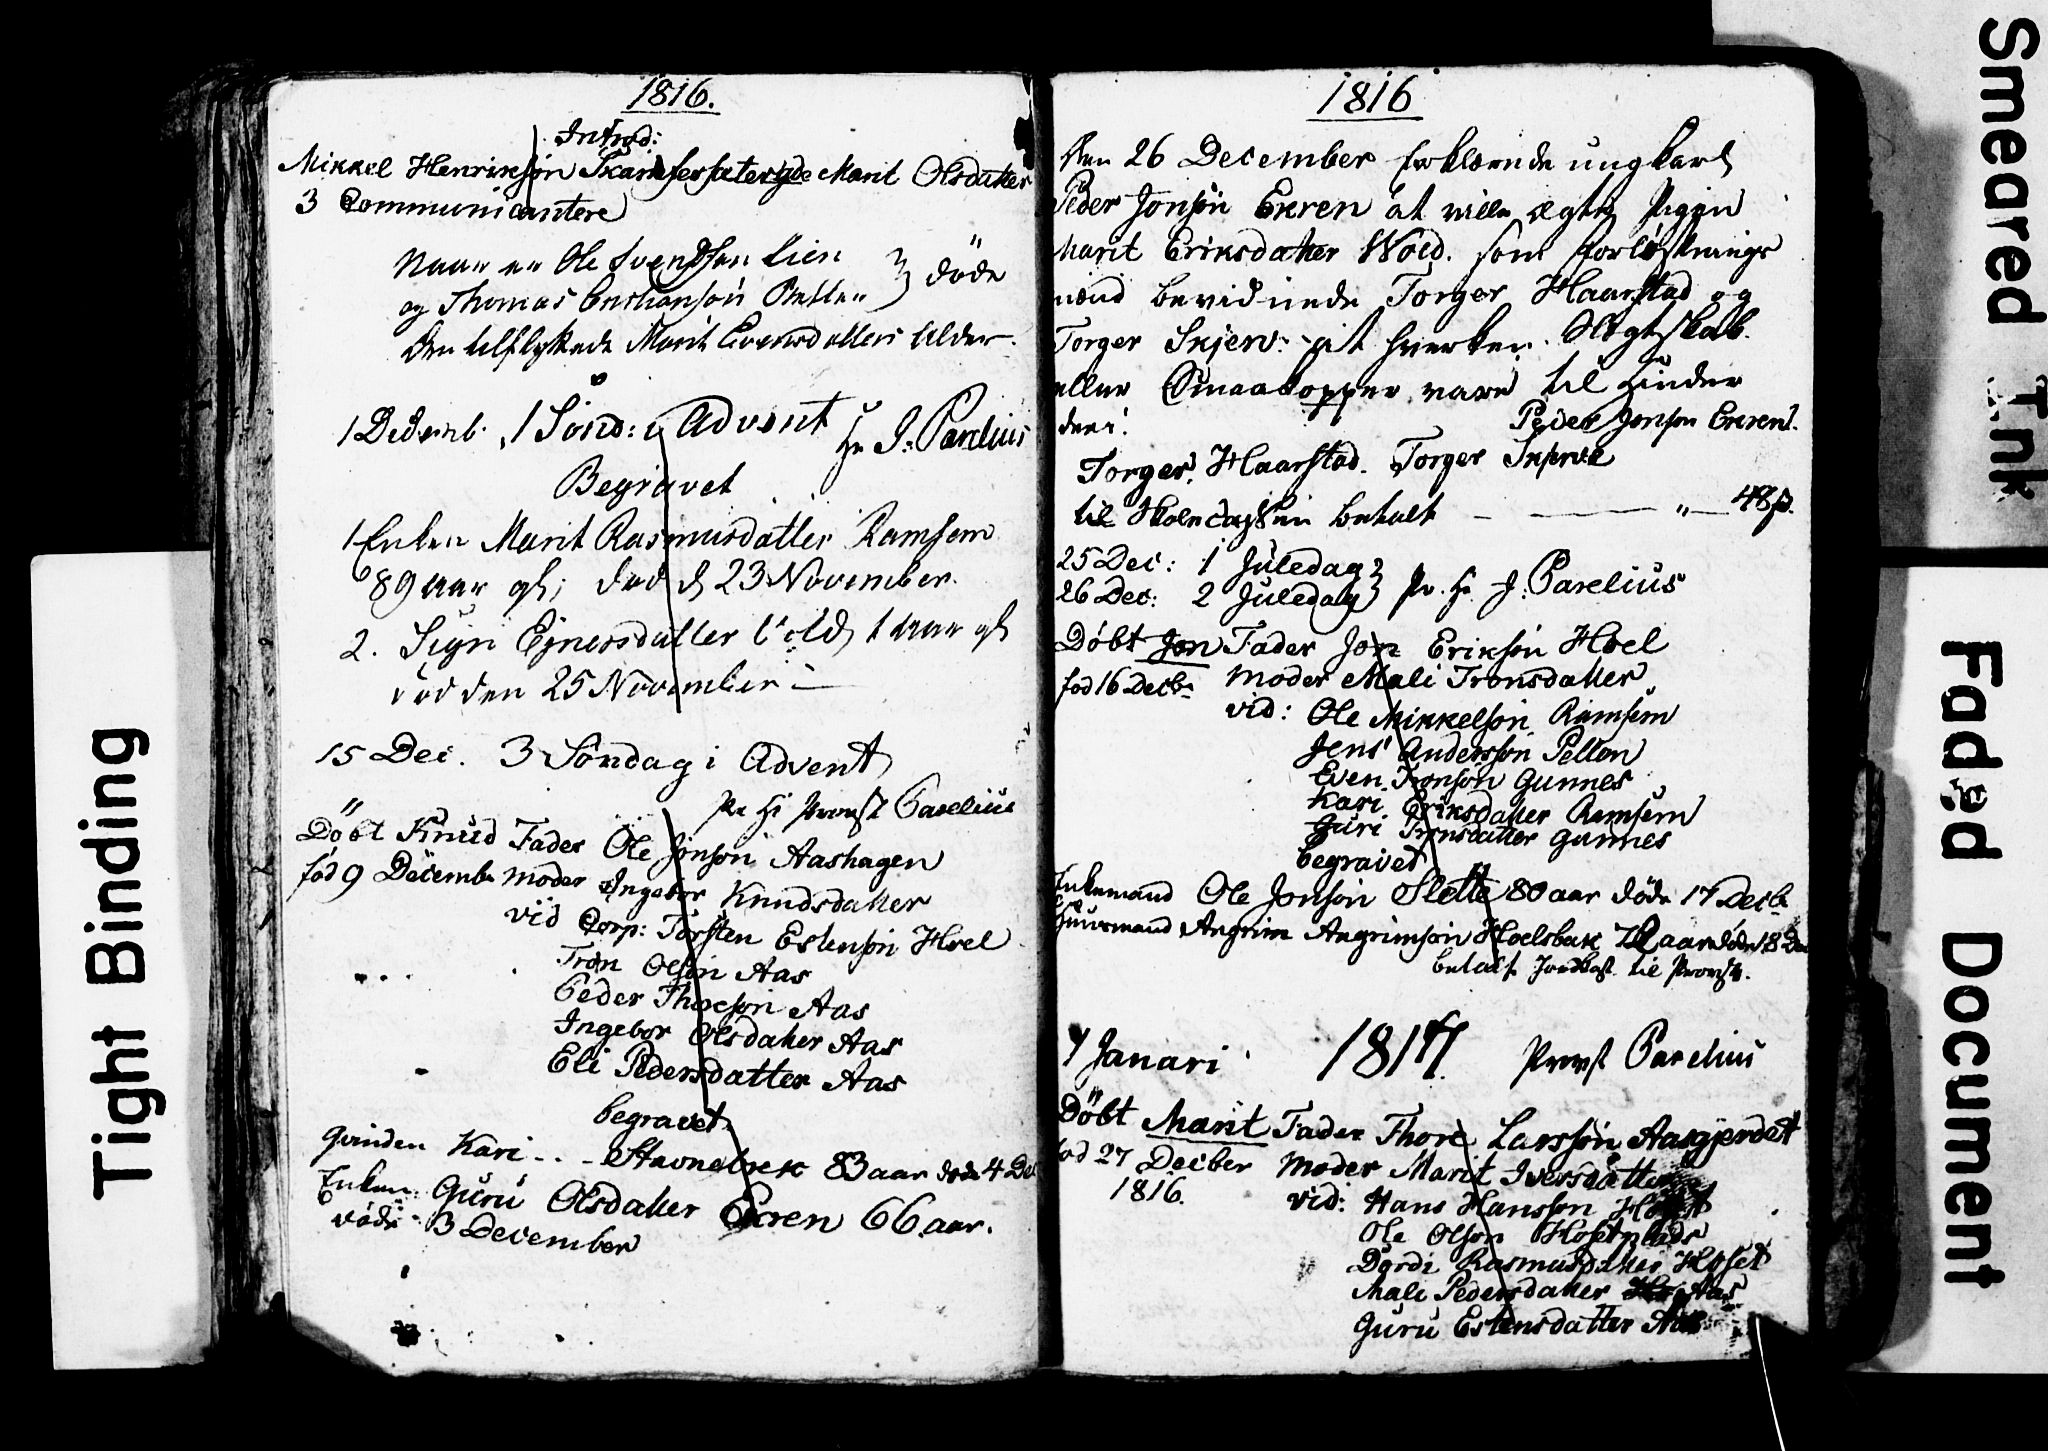 1816.
Introd:
Mikkel Henriksøn Skamfersæter Marit Olsdatter
3 Communicantere
Naar er Ole Svendsen Lien
og Thomas døde
den tilflyttede Marit Evensdatters Alder.
1 Decemb. 1 Sönd: i Advent Hr J: Parelius
Begravet
1 Enken Marit Rasmusdatter Ramsem
89 aar gl; død d 23 November.
2. Sigri Ejnersdatter 1 aar gl
død den 25 November
15 Dec. 3 Søndag i Advent
Pr Hr Provst Parelius
Döbt Knud Fader Ole Jonsön Aashagen
fød 9 Decemb Moder Ingebor Knudsdatter
vid Corp: Torsten Estensøn Hoel
Tron Olsøn Aas
Peder Thoresøn Aas
Ingebor Olsdatter Aas
Eli Pedersdatter Aas
begravet
Qvinden Kari . . - Stavnebek 83 aar døde 4 De
Enken Guru Olsdatter Ekren 66 aar.
døde 3 December
1816
Den 26 December erklærede ungkarl
Peder Jonsön Ekren at ville ægte Pigen
Marit Eriksdatter Wold. som forlovnings
mænd bevidnede Torger Haarstad og
Torger Skjerv: at hverken Slægtskab
eller Smaakopper vare til Hinder
deri.
Peder Jonsøn Ekren.
Torger Haarstad. Torger Skjerve
til Skolecassen betalt — — — " — 48 s.
25 Dec: 1 Juledag
26 Dec: 2 Juledag Pr. Hr J: Parelius
Döbt Jon Fader Jon Eriksøn Hoel
fød 16 Decbr Moder Mali Tronsdatter
vid: Ole Mikkelsøn Ramsem
Jens Anderssøn Pellen
Even Tronsøn Gunnes
Kari Eriksdatter Ramsem
Guri Tronsdatter Gunnes
begravet
Enkemand Ole Jonsøn Slette 80 aar døde 17 Decb
Huusmand Angrim Angrimsøn Hoelsbak aar døde 18 Dec
betalt til Provst.
7 Januari 1817. Provst Parelius
Döbt Marit Fader Thore Larssøn Aasgjerdet
fød 27 Decber Moder Marit Iversdatter
1816. vid: Hans Hanssøn
Ole Olsøn Hosetplads
Dordi Rasmusdatter Hoset
Mali Pedersdatter Aas
Guru Estensdatter Aas
Tight Binding
Smeared Ink
Faded Document